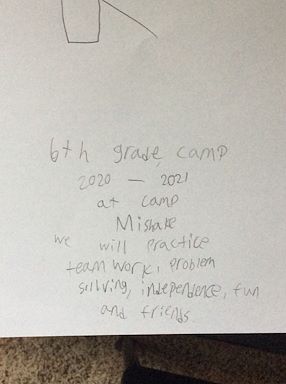 6th grade camp
2020 - 2021
at camp
Mishake
we will Practice
team work, problem
sulving, independence, fun
and friends